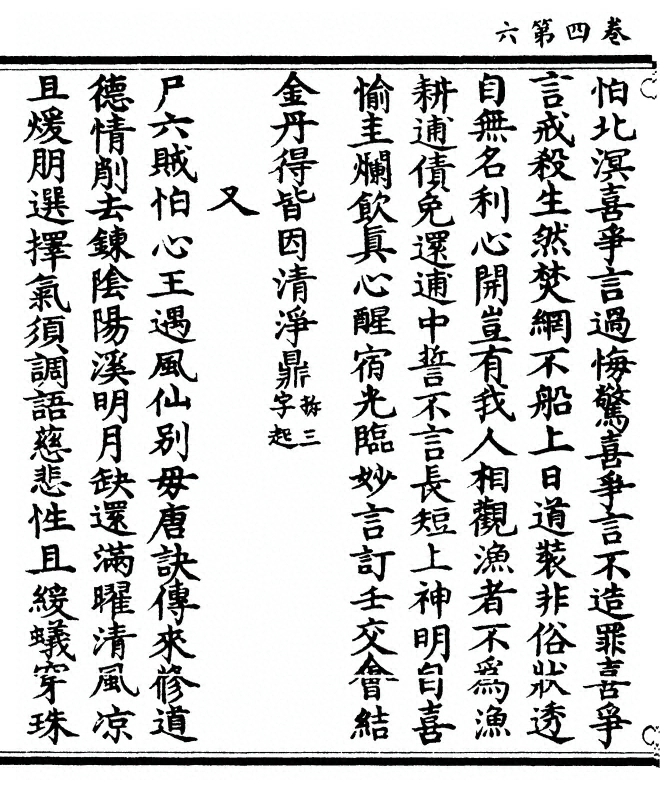 卷四第六
怕北溟喜爭言過悔驚喜爭言不造罪喜爭
言戒殺生然焚網不船上日道裝非俗狀透
自無名利心開豈有我人相觀漁者不爲漁
耕逋債免還逋中誓不言長短上神明自喜
愉圭爛飲眞心醒宿光臨妙言訂壬交會結
金丹得皆因清淨鼎拆三字起
又
尸六賊怕心王遇風仙別毋唐訣傳來修道
德情削去鍊陰陽溪明月缺還滿曜清風凉
且煖朋選擇氣須調語慈悲性且緩蟻穿珠